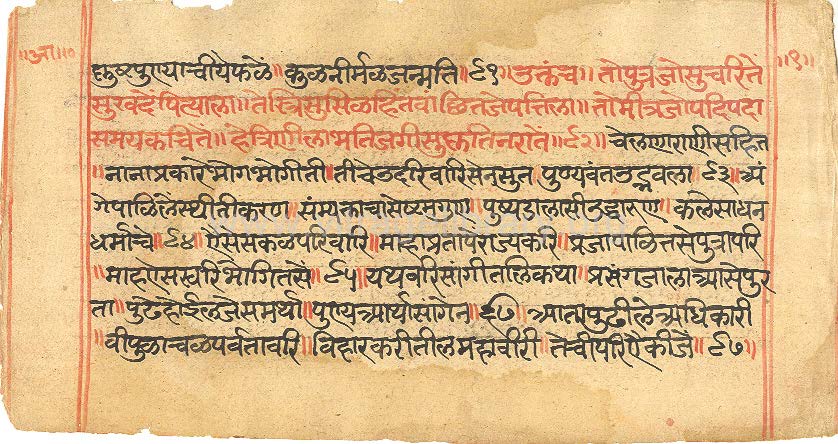 ॥आ॥१०
॥१॥
ह्मष्टपुण्याचीयेफळें॥ कुळनीर्मळजन्मति॥६१॥उक्तंच॥ तोपुत्रजोसुचरिते
सुखदेपित्याला॥ तेस्त्रिसुसिळहितवाछितजेपतिला॥ तोमीत्रजोपदिपदा
समयकचिते॥ हेत्रिणीलाभतिजगीसुकृतिनराते॥६२॥ चेलाणाराणीसहित
॥नानाप्रकारेभोगभोगीती॥तीचेउदरीवारिसेनसुत पुण्यवंतउद्भवला॥६३॥अं
गेपाळिलेंस्थीतीकरण॥ संम्यक्ताचासेष्टमगुण॥ पुष्पडालासीउद्धारुण॥ कलेसाधन
धर्माचे॥६४॥ ऐसेसकळपरिवारि॥माहाप्रतापेराज्यकरि॥ प्रजापाळितसेपुत्रापरि
॥माहाऐसर्खरिभोगितसे॥६५॥यथवरिसांगीतलिकथा॥ प्रसंगजालाअसेपुर
ता॥पुढेहोईलजैसमर्था॥पुण्यआर्यासांगेन॥६६॥ आतापुढीलेअधिकारी
॥वीपुळाचळपर्वतावरि॥विहारकरीतीलमहावीरी॥ तेचीपरिऐकीजे॥६७॥